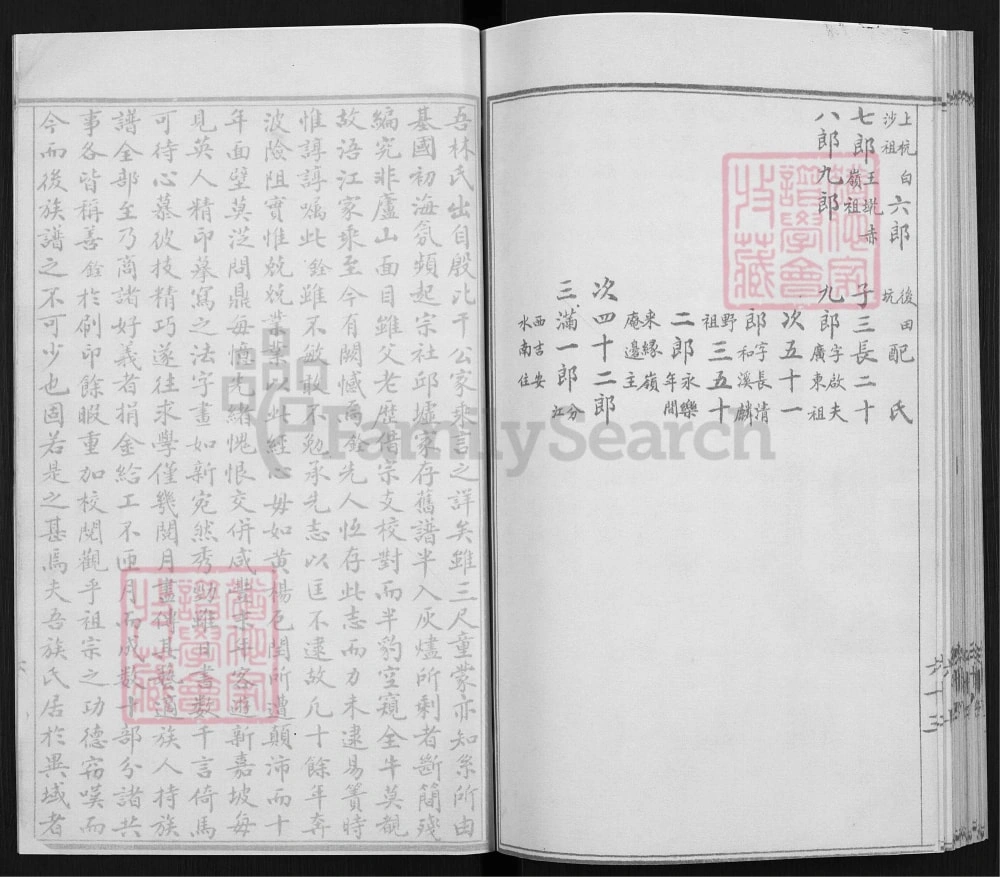 上杭白
沙祖
六郎
後田
坑
配氏
七郎
王㘬赤
嶺祖
子三長二十
八郎九郎
九郎
字啟夫
廣東祖
次五十一
郎
字長清
和溪麟
野
祖
三五十
二郎
永樂
年間
來緣嶺
庵邊主
次四十二郎
三滿一郎
分江
西吉安
水南住
吾林氏出自殷比干公家乘言之詳矣雖三尺童蒙亦知系所由
基國初海氛頻起宗社邱墟家存舊譜半入灰燼所剩者斷簡殘
編究非廬山面目雖父老歷借宗支校對而半豹空窺全牛莫覩
故語江家乘至今有闕憾焉銓先人恆存此志而力未逮易簀時
惟諄諄囑此銓雖不敏敢不勉承先志以匡不逮故凡十餘年奔
波險阻實惟兢兢業業以此經心毋如黃楊厄閏所遭顛沛而十
年面壁莫從問鼎每慎先緒愧恨交併咸豐末年客遊新嘉坡每
見英人精印摹寫之法字畫如新宛然秀勁雖日書數千言倚馬
可待心慕彼技精巧遂往求學僅幾閱月盡得其藝適族人持族
譜全部至乃商諸好義者捐金給工不匝月而成數十部分諸共
事各皆稱善銓於刷印餘暇重加校閱觀乎祖宗之功德竊嘆而
今而後族譜之不可少也固若是之甚焉夫吾族氏居於異域者
六十三
FamilySearch